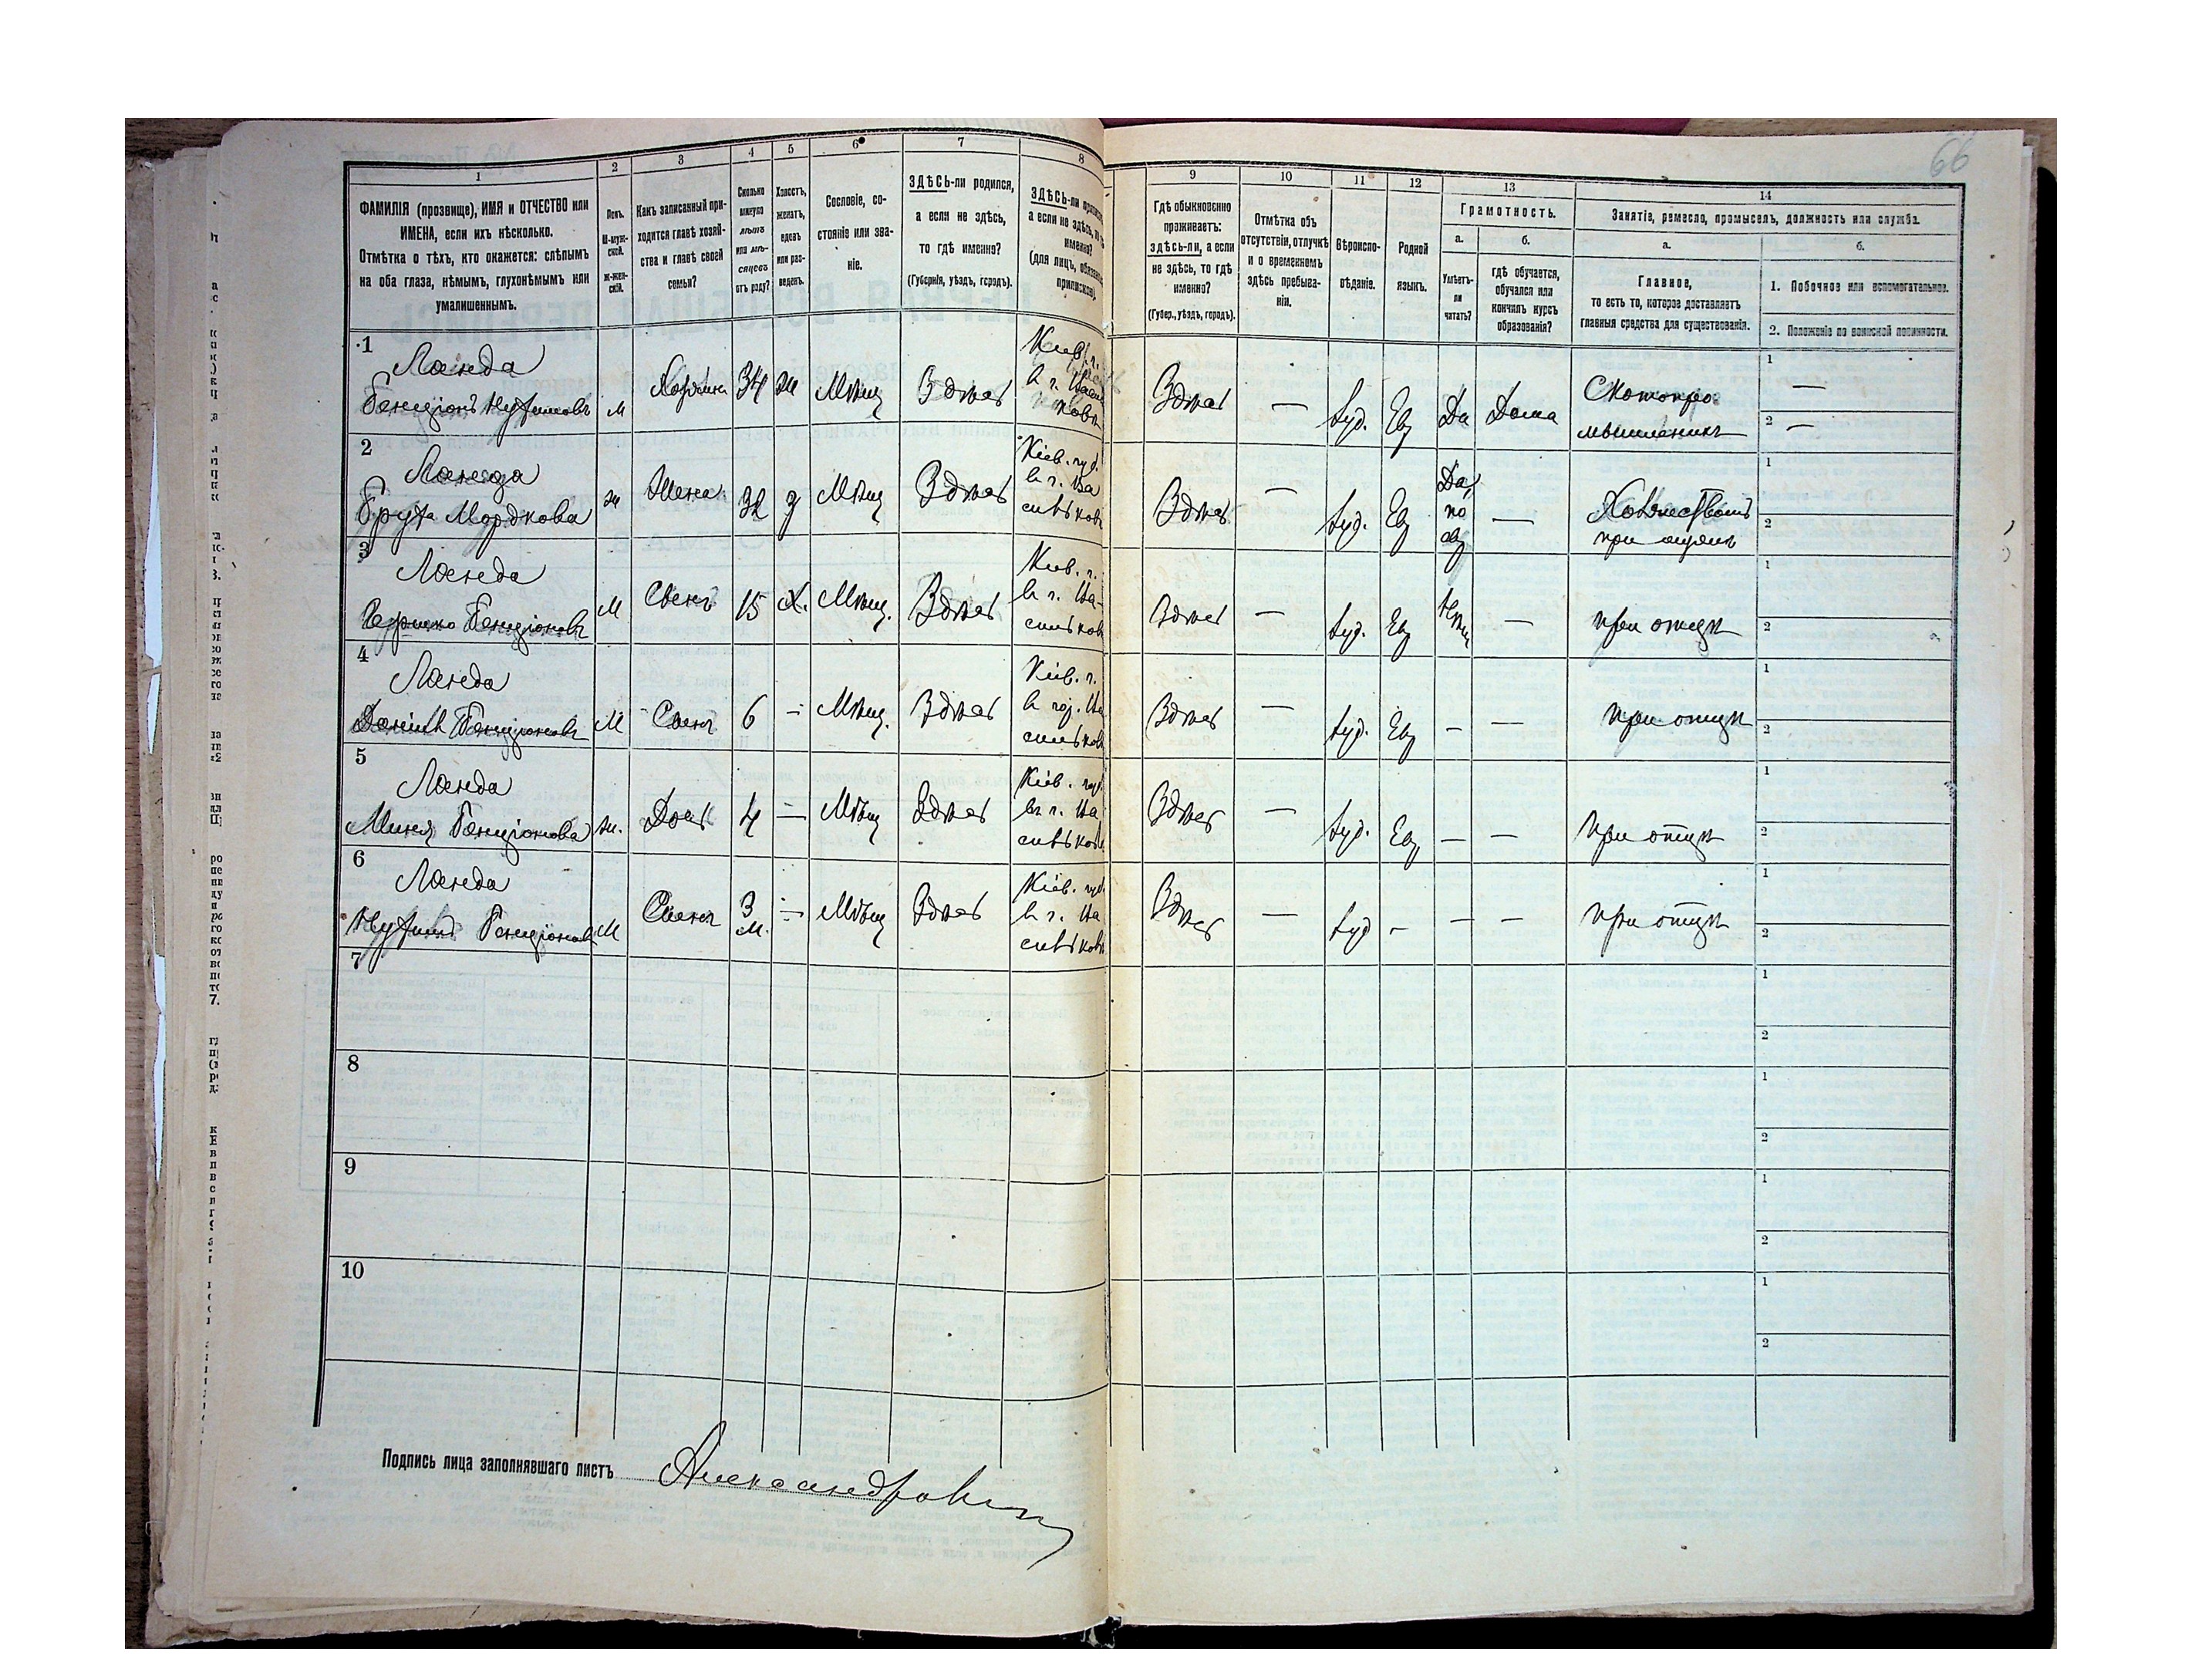 66
1
2
3
4
5
6
7
8
9
10
11
12
13
14
ФАМИЛІЯ (прозвище), ИМЯ и ОТЧЕСТВО или
ИМЕНА, если ихъ нѣсколько.
Отмѣтка о тѣхъ, кто окажется: слѣпымъ
на оба глаза, нѣмымъ, глухонѣмымъ или
умалишеннымъ.
Полъ.
М-муж-
ской.
ж-жен-
скій.
Какъ записанный при-
ходится главѣ хозяй-
ства и главѣ своей
семьи?
Сколько
минуло
лѣтъ
или мѣ-
сяцевъ
отъ роду?
Холостъ,
женатъ,
вдовъ
или раз-
веденъ.
Сословіе, со-
стояніе или зва-
ніе.
ЗДѢСЬ-ли родился,
а если не здѣсь,
то гдѣ именно?
(Губернія, уѣздъ, городъ).
ЗДѢСЬ-ли
а если не здѣсь, то
именно?
(для лицъ,
Гдѣ обыкновенно
проживаетъ:
здѣсь-ли, а если
не здѣсь, то гдѣ
именно?
(Губер., уѣздъ, городъ).
Отмѣтка объ
отсутствіи, отлучкѣ
и о временномъ
здѣсь пребыва-
ніи.
Вѣроиспо-
вѣданіе.
Родной
языкъ.
Грамотность.
а.
Умѣетъ-
ли
читать?
б.
гдѣ обучается,
обучался или
кончилъ курсъ
образованія?
Занятіе, ремесло, промыселъ, должность или служба.
а.
Главное,
то есть то, которое доставляетъ
главныя средства для существованія.
б.
1. Побочное или вспомогательное.
2. Положеніе по воинской повинности.
1
Ланда
Бенціонъ Нухимовъ
м
Хозяинъ
34
ж
Мѣщ
Здѣсь
Кіев. г.
Здѣсь
—
Іуд.
Евр
Да
Дома
Скотопро-
мышленникъ
1 —
2 —
2
Ланда
Бруха Мордкова
ж
Жена
32
з
Мѣщ
Здѣсь
Кіев. губ.
в г. Ва
сильков
Здѣсь
—
Іуд.
Евр
Да,
по
евр
—
при мужѣ
1
2
3
Ланда
Гершко Бенціоновъ
М
Сынъ
15
х.
Мѣщ.
Здѣсь
Кіев. г.
в г. Ва-
сильков
Здѣсь
—
Іуд.
Евр
—
при отцѣ
1
2
4
Ланда
Бенціоновъ
М
Сынъ
6
—
Мѣщ.
Здѣсь
Кіев. г.
в гор. Ва
сильков
Здѣсь
—
Іуд.
Евр
—
при отцѣ
1
2
5
Ланда
Миня Бенціонова
ж.
Дочь
4
—
Мѣщ
Здѣсь
Кіев. губ.
въ г. Ва
сильков
Здѣсь
—
Іуд.
Евр
—
—
при отцѣ
1
2
6
Ланда
Нухимъ Бенціоновъ
М
Сынъ
3
м.
—
Мѣщ
Здѣсь
Кіев. губ.
в г. Ва
сильков
Здѣсь
—
Іуд
—
—
—
при отцѣ
1
2
7
1
2
8
1
2
9
1
2
10
1
2
Подпись лица заполнявшаго листъ